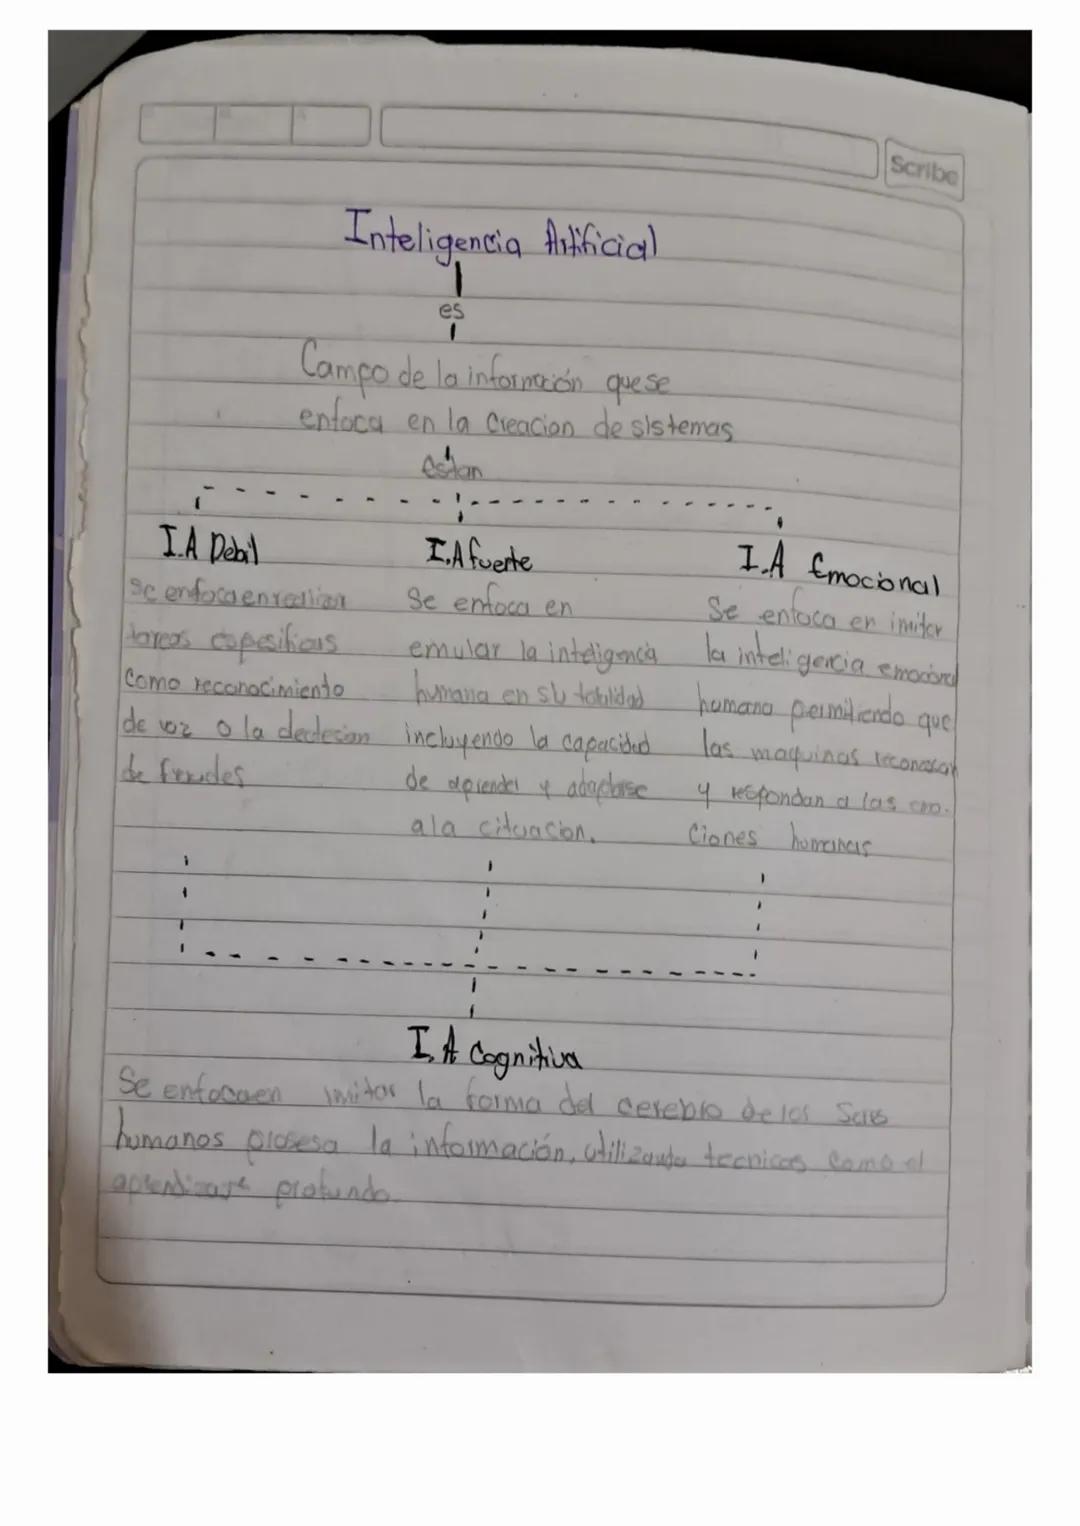 Scribe
Inteligencia Artificial
es
Campo de la información que se
enfoca en la Creacion de sistemas
estan
I.A Debil
I.A fuerte
I.A Emocional
Se enfoca en realizar
tareas espesificas
Como reconocimiento
de voz o la dectesion
de fraudes
Se enfoca en
emular la inteligencia
humana en su totalidad
incluyendo la capacidad
de aprender y adaptarse
a la cituacion.
Se enfoca en imitar
la inteligencia emocional
humana permitiendo que
las maquinas reconoscan
y respondan a las emo-
Ciones humanas
I.A Cognitiva
Se enfoca en imitar la forma del cerebro de los Seres
humanos prosesa la información, utilizando tecnicas Como el
aprendizaje profundo.